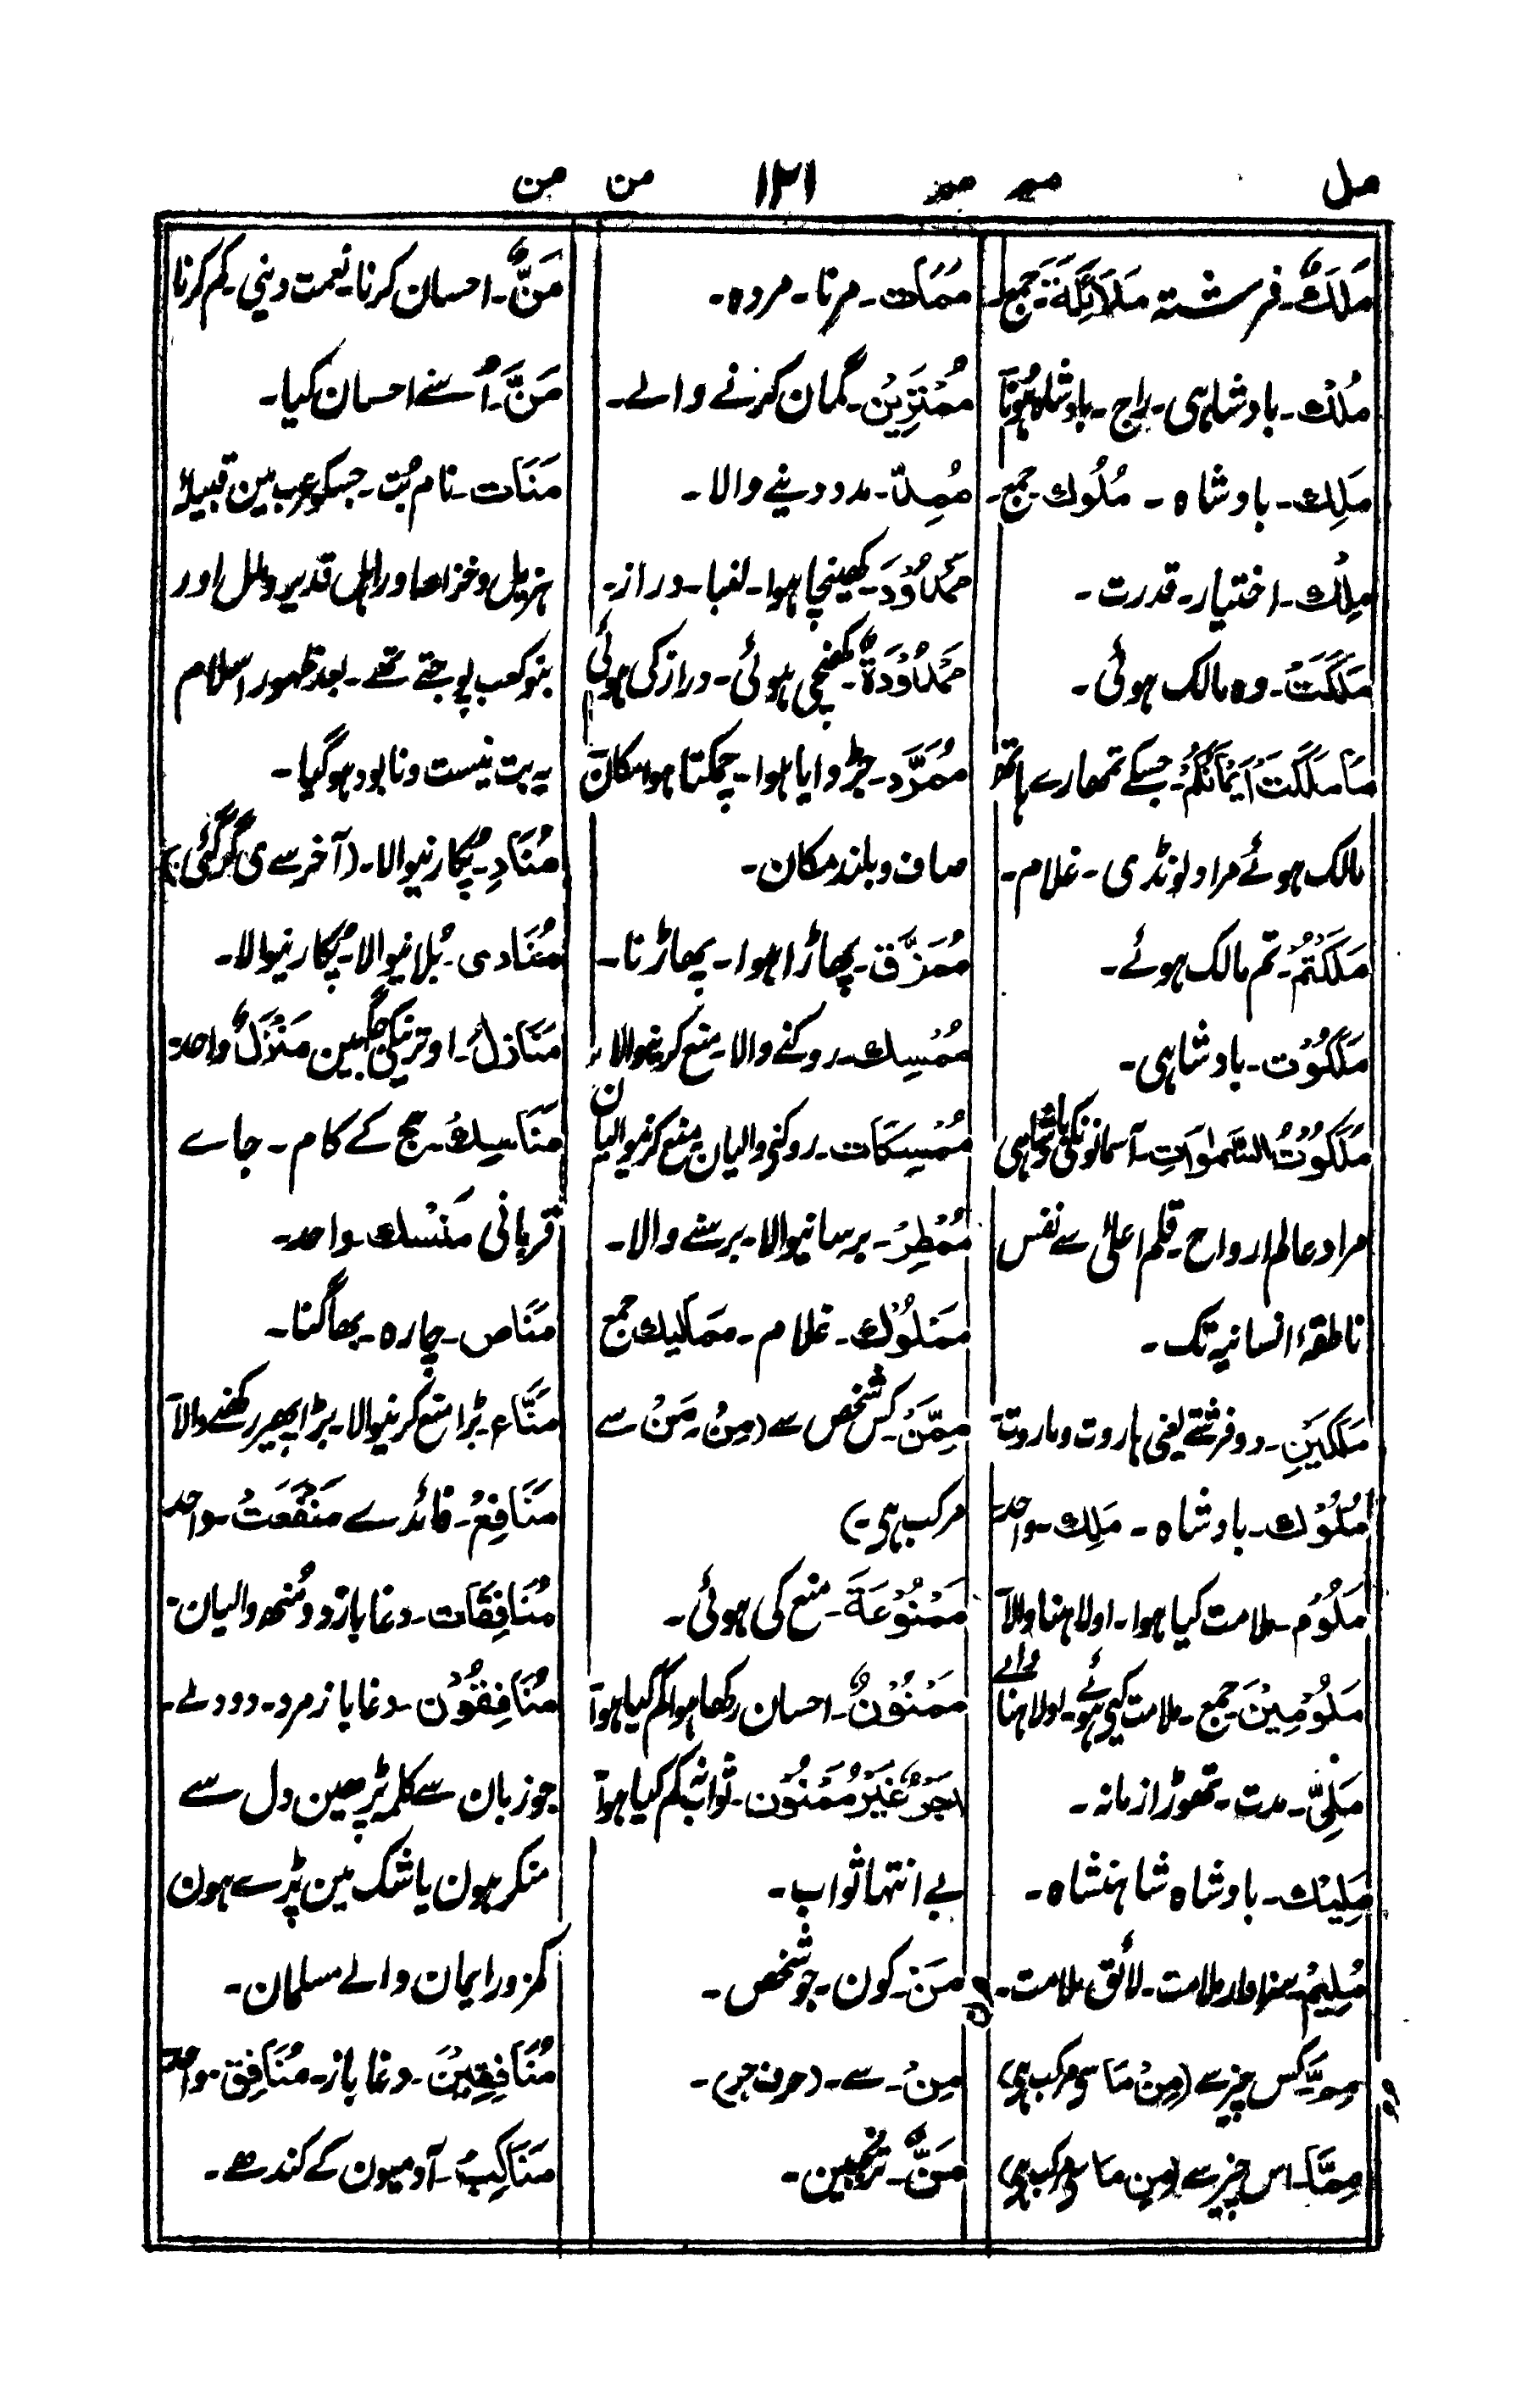 مل مم مم ۱۲۱ من من
مَلَكٌ۔ فرشتہ مَلَآئِكَة۔ جمع۔
مُلْك۔ بادشاہی۔ راج۔ بادشاہ ہونا
مَلِك۔ بادشاہ۔ مُلُوك جمع۔
مِلْك۔ اختیار۔ قدرت۔
مَلَكَتْ۔ وہ مالک ہوئی۔
مَا مَلَكَتْ اَيْمَانُكُمْ۔ جسکے تمھارے ہاتھ
مالک ہوئے مراد لونڈی۔ غلام۔
مَلَكْتُمْ۔ تم مالک ہوئے۔
مَلَكُوْت۔ بادشاہی۔
مَلَكُوْتُ السَّمٰوٰتِ۔ آسمانونکی بادشاہی
مراد عالم ارواح۔ قلم اعلیٰ سے نفس
ناطقۂ انسانیہ تک۔
مَلَكَيْنِ۔ دو فرشتے یعنی ہاروت و ماروت۔
مُلُوْك۔ بادشاہ۔ مَلِك۔ واحد
مَلُوْم۔ ملامت کیا ہوا۔ اولاہنا والا
مَلُوْمِيْنَ جمع۔ ملامت کیے ہوئے۔ اولاہنا والے
مَلِيًّ۔ مدت۔ تھوڑا زمانہ۔
مَلِيْك۔ بادشاہ شاہنشاہ۔
مُلِيْمٌ۔ سزاوار ملامت۔ لائق ملامت۔
مِمَّ۔ کس چیز سے (مِنْ مَا سے مرکب ہی)
مِمَّا۔ اس چیز سے (مِن مَا سے مرکب ہی)
مَمَات۔ مرنا۔ مردہ۔
مُمْتَرِيْن۔ گمان کرنے والے۔
مُمِدّ۔ مدد دینے والا۔
مَمْدُوْدَ۔ کھینچا ہوا۔ لنبا۔ دراز۔
مَمْدُوْدَةٌ۔ کھنچی ہوئی۔ دراز کی ہوئی
مُمَرَّد۔ جڑوایا ہوا۔ چمکتا ہوا مکان
صاف و بلند مکان۔
مُمَزَّق۔ پھاڑا ہوا۔ پھاڑنا۔
مُمْسِك۔ روکنے والا۔ منع کرنیوالا
مُمْسِكَات۔ روکنی والیان۔ منع کرنیوالیان
مُمْطِرُ۔ برسانیوالا۔ برسنے والا۔
مَمْلُوْك۔ غلام۔ ممالیك جمع
مِمَّنْ۔ کس شخص سے (مِنْ۔ مَنْ سے
مرکب ہی۔)
مَمْنُوْعَة۔ منع کی ہوئی۔
مَمْنُوْنٌ۔ احسان رکھا ہوا کم کیا ہوا
اَجْرٌ غَيْرُ مَمْنُوْن۔ ثواب نہ کم کیا ہوا
بے انتہا ثواب۔
مَنْ۔ کون۔ جو شخص۔
مِنْ۔ سے۔ (حرف جر)۔
مَنٌّ۔ ترنجبین۔
مَنٌّ۔ احسان کرنا۔ نعمت دینی۔ کم کرنا
مَنَّ۔ اُسنے احسان کیا۔
مَنَات۔ نام بُت۔ جسکو عرب مین قبیلۂ
ہزیل و خزاعہ اور اہل قدیر وہل اور
بنو کعب پوجتے تھے۔ بعد ظہور اسلام
یہ بت نیست و نابود ہوگیا۔
مُنَادِ۔ پُکارنیوالا۔ (آخر سے ی گر گئی)
مُنَادی۔ بُلانیوالا۔ پُکارنیوالا۔
مَنَازِلُ۔ اوترنیکی جگہین مَنْزِلٌ واحد
مَنَاسِكَ۔ حج کے کام۔ جاے
قربانی مَنْسك۔ واحد۔
مَنَاص۔ چارہ۔ بھاگنا۔
مَنَّاع۔ بڑا منع کرنیوالا۔ بڑا پھیر رکھنے والا
مَنَافِعُ۔ فائدے مَنْفَعَتُ۔ واحد
مُنَافِقَات۔ دغا باز دو مُنھ والیان۔
مُنَافِقُوْن۔ دغا باز مرد۔ دو دلے۔
جو زبان سے کلمہ پڑھین دل سے
منکر ہون یا شک مین پڑے ہون
کمزور ایمان والے مسلمان۔
مُنَافِقِيْنَ۔ دغا باز۔ مُنَافِق۔ واحد
مَنَاكِبُ۔ آدمیون کے کندھے۔